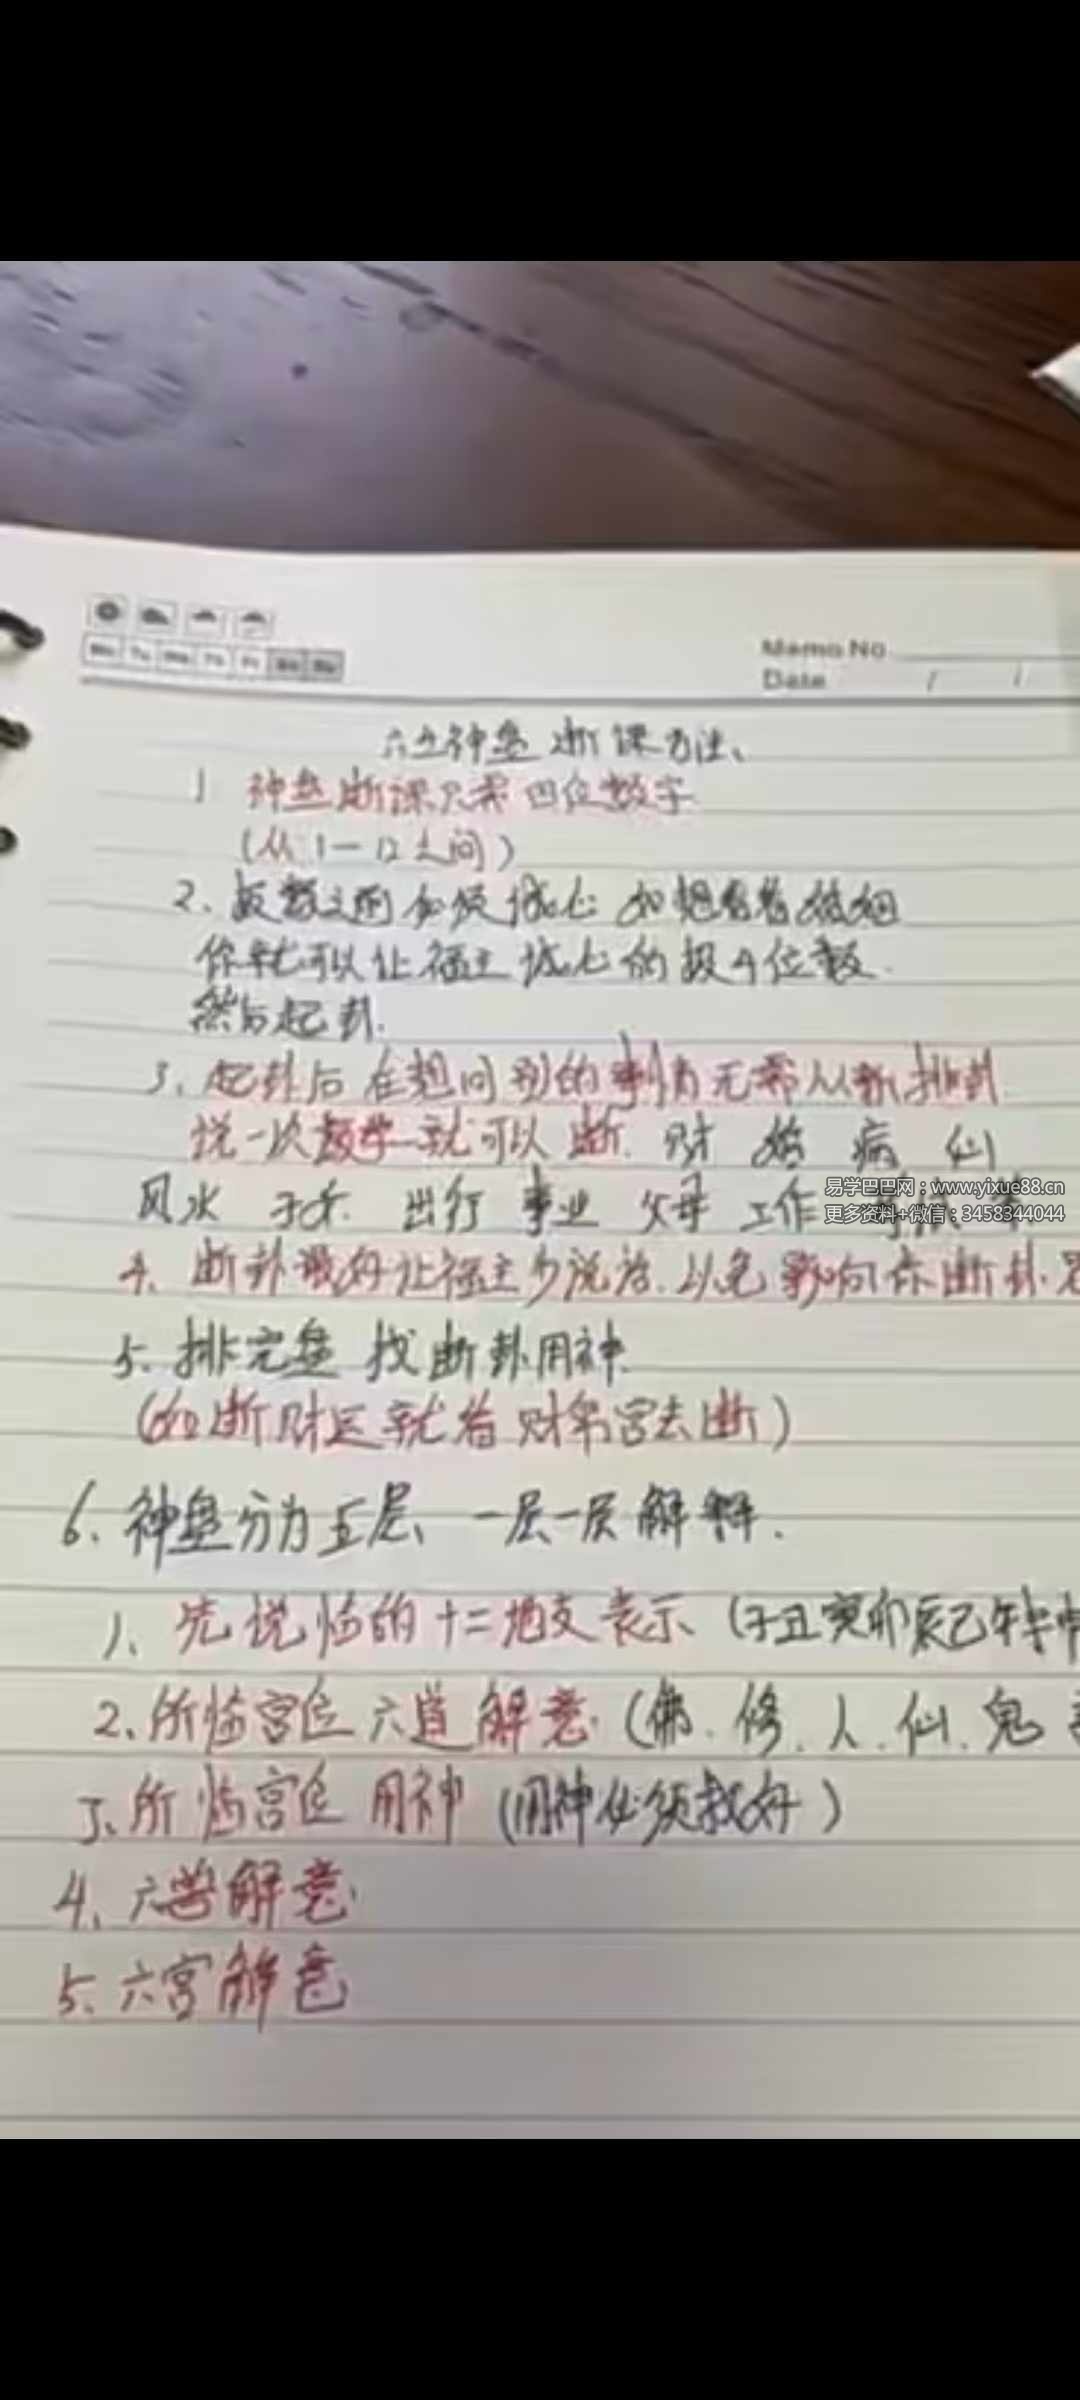 Memo No
Date / /
六壬神盘 断课方法、
1 神盘断课只需四位数字
(从1一12之间)
2、报数之前必须诚心 如想看看婚姻
你就可以让福主诚心的报4位数.
然后起卦.
3、起卦后在想问别的事情无需从新排卦
说一次数字就可以断. 财 婚 病 仙
风水 子女. 出行 事业 父母 工作
易学巴巴网:www.yixue88.cn
更多资料+微信:3458344044
4、断卦最好让福主少说话.以免影响你断卦
5、排完盘 找断卦用神.
(如断财运就看财帛宫去断)
6、神盘分为五层、一层一层解释.
1、先说临的十二地支表示 (子丑寅卯辰巳午未申
2、所临宫位六道解意 (佛、修、人、仙、鬼
3、所临宫位 用神 (用神必须找好)
4、六兽解意
5、六宫解意